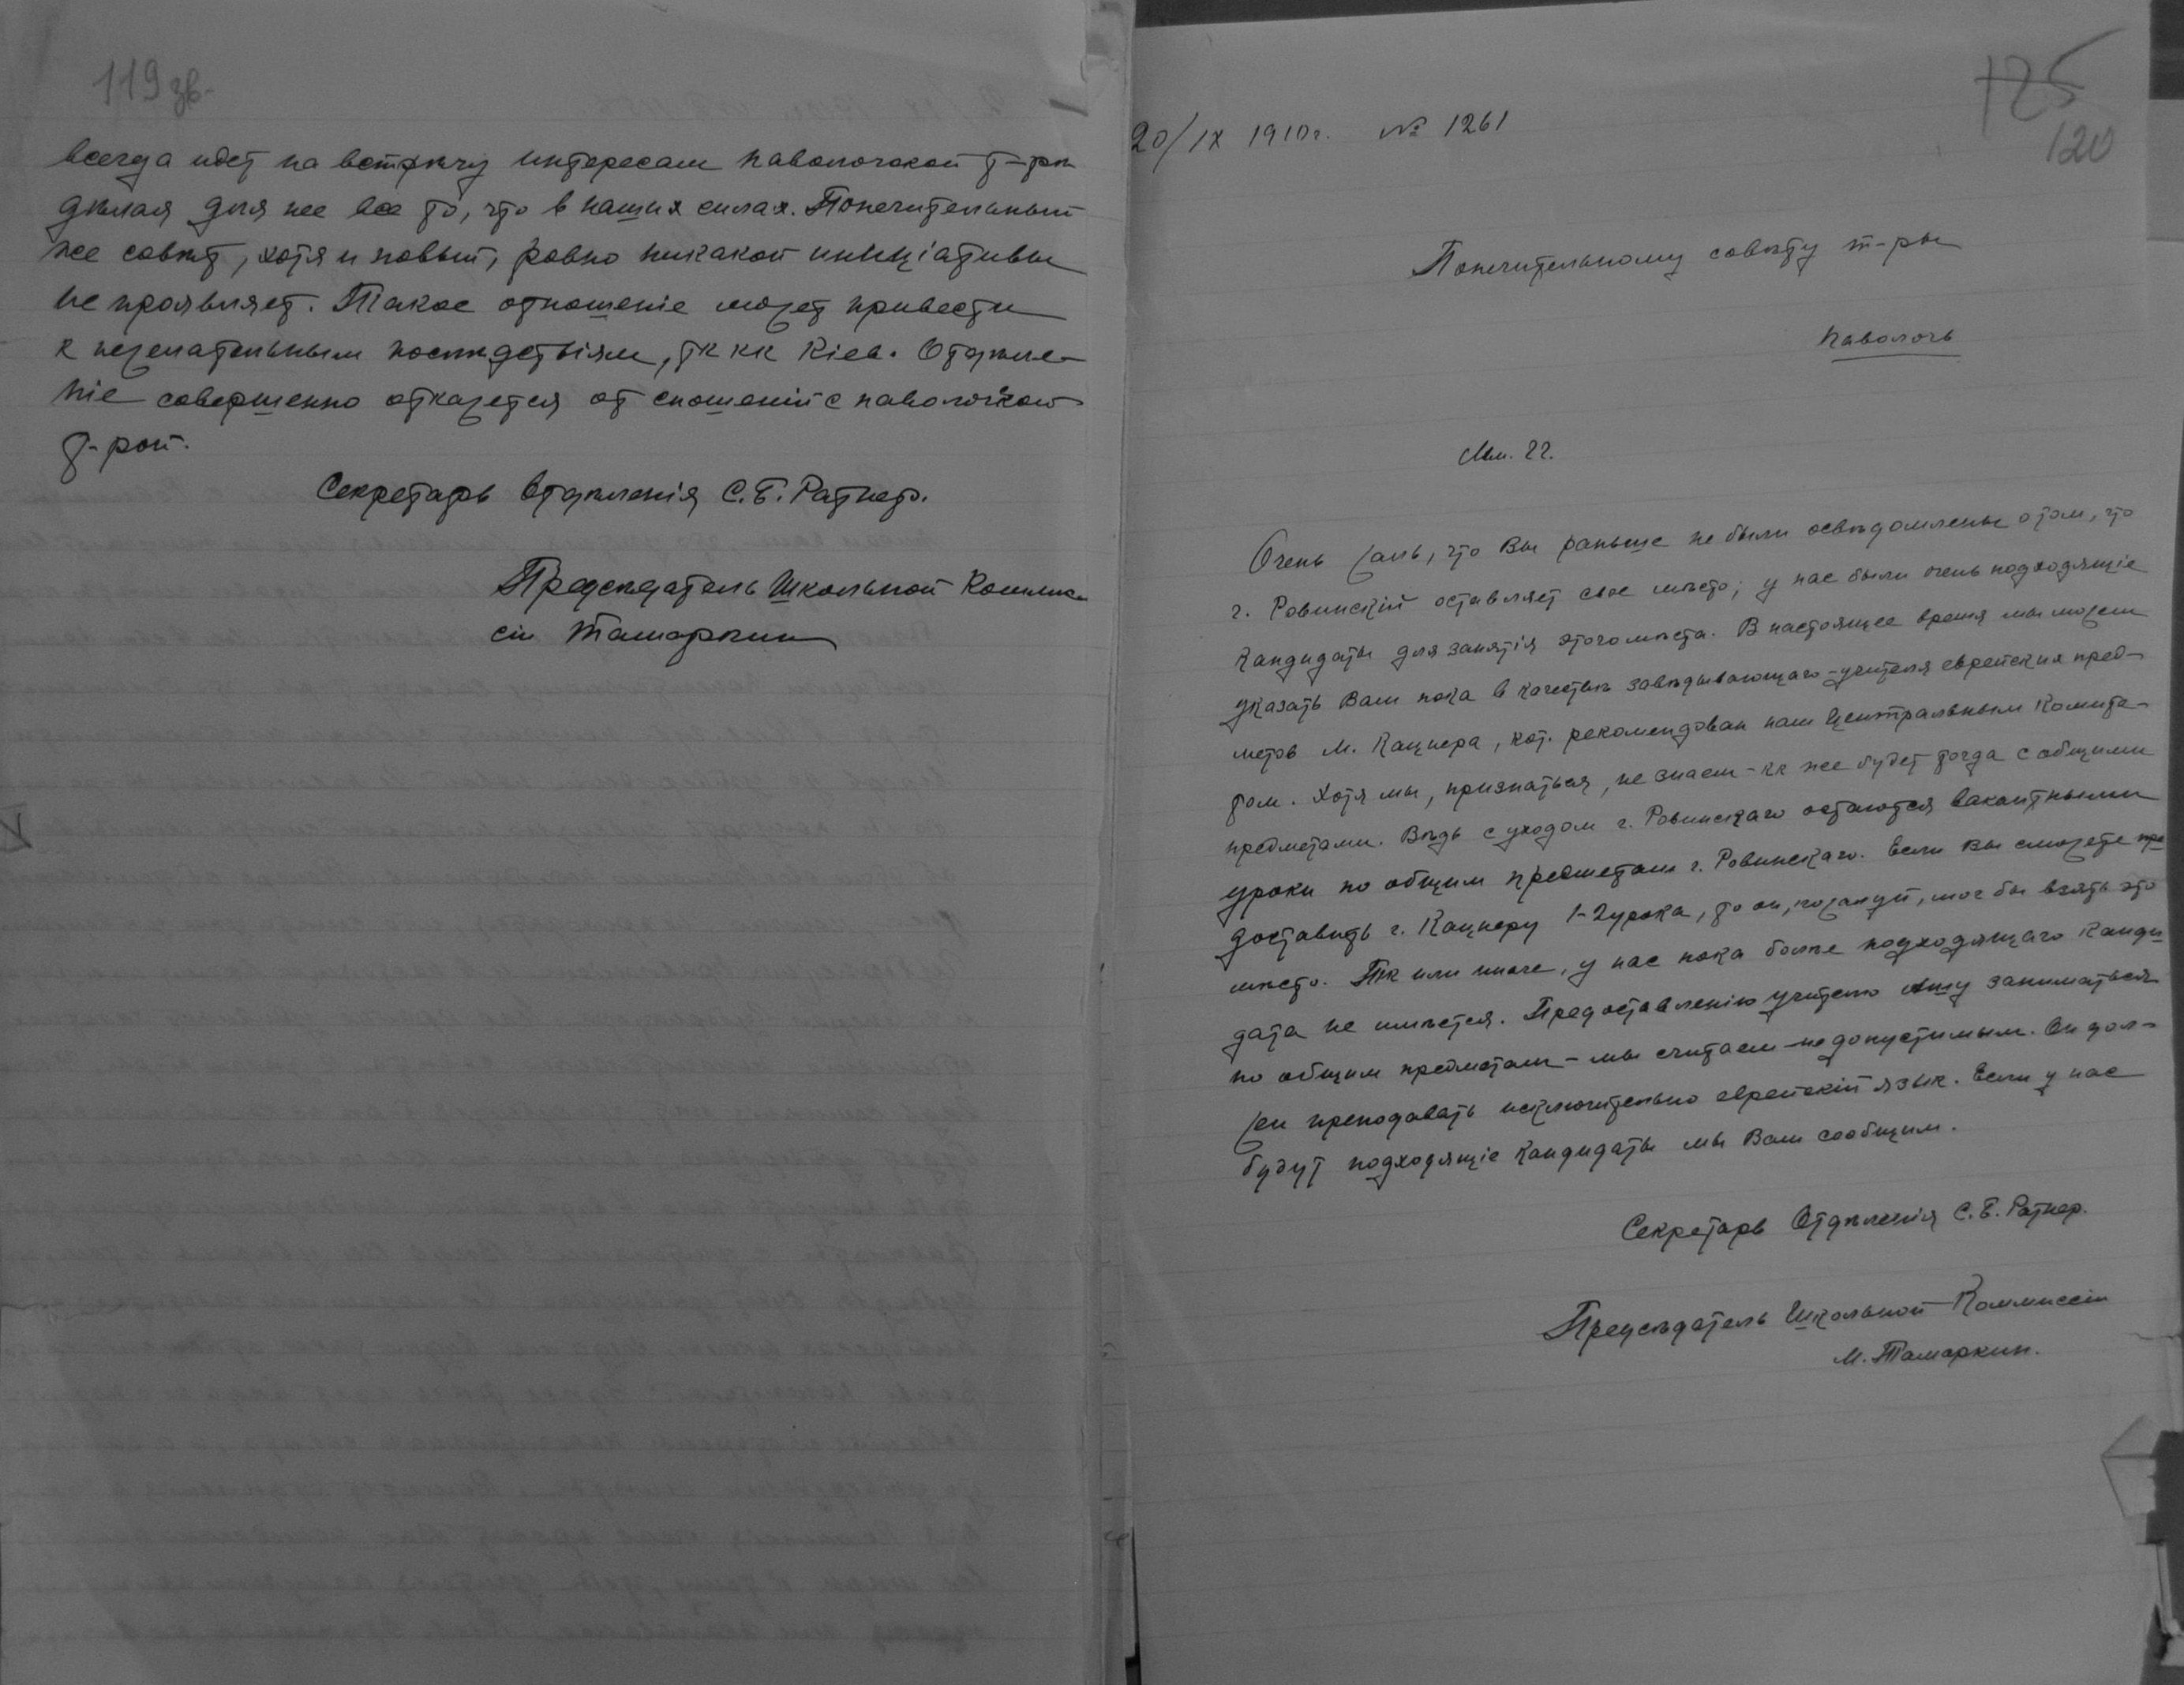 119 зв.
всегда идет на встрѣчу интересам паволочской т-ры
дѣлая для нее все то, что в наших силах. Попечительный
же совѣт, хотя и новый, ровно никакой инициативы
не проявляет. Такое отношеніе может привести
к нежелательным послѣдствіям, тк кк Кіев. Отдѣле-
ніе совершенно откажется от сношеній с паволочской
т-рой.
Секретарь Отдѣленія С. Б. Ратнер.
Предсѣдатель Школьной Комис-
сіи Тамаркин
125
120
20/IX 1910 г. № 1261
Попечительному совѣту т-ры
Паволочь
Мм. Гг.
Очень жаль, что Вы раньше не были освѣдомлены о том, что
г. Ровинскій оставляет свое мѣсто; у нас были очень подходящіе
кандидаты для занятія этого мѣста. В настоящее время мы можем
указать Вам пока в качествѣ завѣдывающаго-учителя еврейских пред-
метов М. Кацнера, кот. рекомендован нам Центральным Комите-
том. Хотя мы, признаться, не знаем - кк же будет тогда с общими
предметами. Вѣдь с уходом г. Ровинскаго остаются вакантными
уроки по общим предметам г. Ровинскаго. Если Вы сможете пре
доставить г. Кацнеру 1-2 урока, то он, пожалуй, мог бы взять это
мѣсто. Тк или иначе, у нас пока болѣе подходящаго канди
дата не имѣется. Предоставленію учителю Ашу заниматься
по общим предметам - мы считаем - недопустимым. Он дол-
жен преподавать исключительно еврейскій язык. Если у нас
будут подходящіе кандидаты мы Вам сообщим.
Секретарь Отдѣленія С. Б. Ратнер.
Предсѣдатель Школьной Коммиссіи
М. Тамаркин.